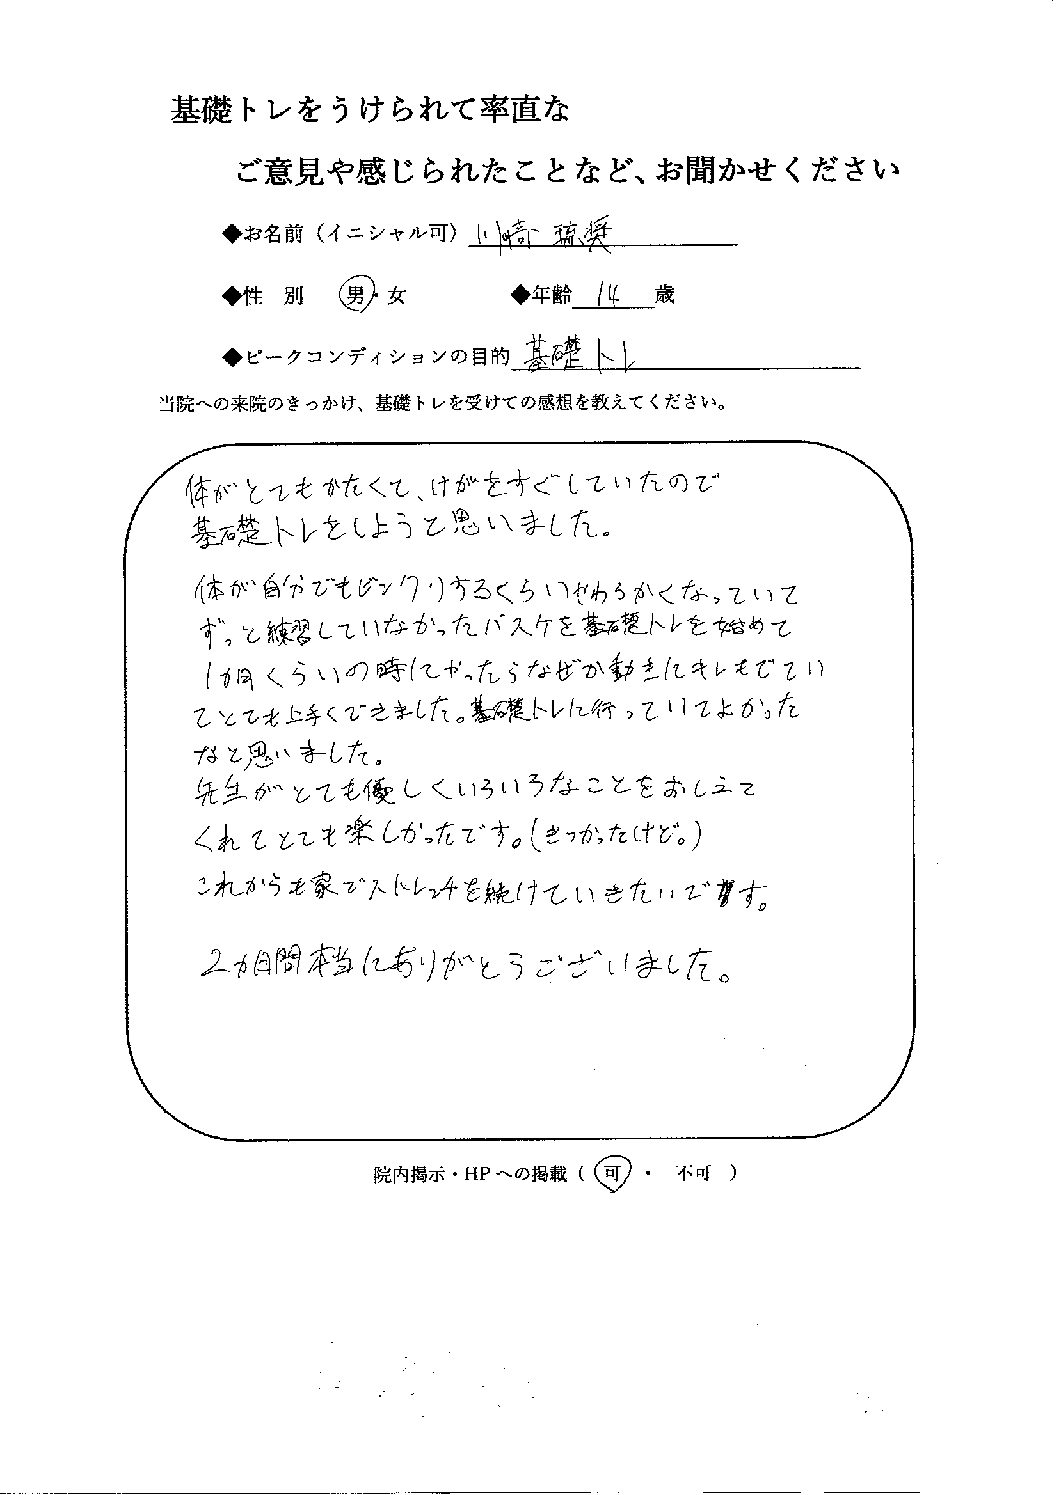 基礎トレをうけられて率直な
ご意見や感じられたことなど、お聞かせください
◆お名前（イニシャル可）川崎 琉奨
◆性 別 男・女 ◆年齢 14 歳
◆ピークコンディションの目的 基礎トレ
当院への来院のきっかけ、基礎トレを受けての感想を教えてください。
体がとてもかたくて、けがをすぐしていたので
基礎トレをしようと思いました。
体が自分でもビックリするくらいやわらかくなっていて
ずっと練習していなかったバスケを基礎トレを始めて
1カ月くらいの時にやったらなぜか動きにキレもでてい
てとても上手くできました。基礎トレに行っていてよかった
なと思いました。
先生がとても優しくいろいろなことをおしえて
くれてとても楽しかったです。(きつかったけど。)
これからも家でストレッチを続けていきたいです。
2カ月間本当にありがとうございました。
院内掲示・HPへの掲載（ 可 ・ 不可 ）